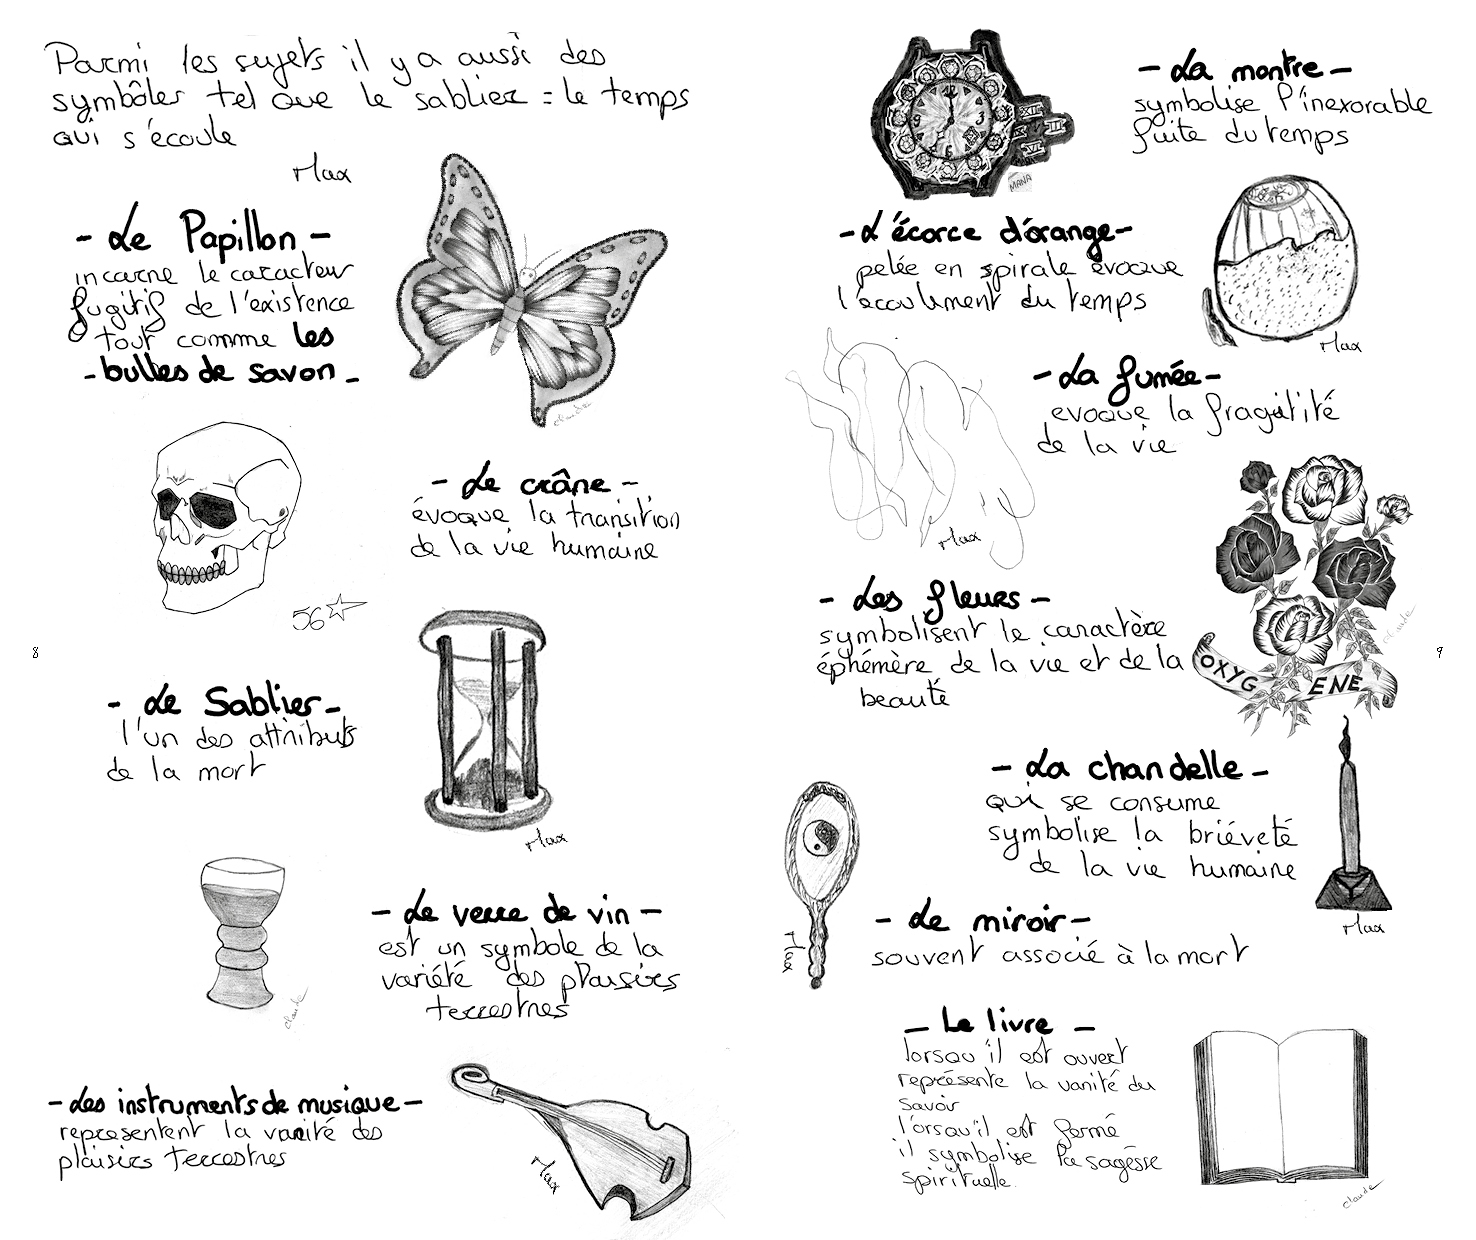 Parmi les sujets il y a aussi des
symbôles tel que le sablier = le temps
qui s'écoule
Max
- Le Papillon -
incarne le caracteur
fugitif de l'existence
tout comme les
- bulles de savon -
claude
- Le crâne -
évoque la transition
de la vie humaine
56
- Le Sablier -
l'un des attributs
de la mort
Max
- Le verre de vin -
est un symbole de la
variété des plaisirs
terrestres
claude
- Les instruments de musique -
representent la vanité des
plaisirs terrestres
Max
8
- La montre -
symbolise l'inexorable
fuite du temps
12
3
9
XII
III
VI
MANA
- L'écorce d'orange -
pelée en spirale évoque
l'écoulement du temps
Max
- La fumée -
evoque la fragilité
de la vie
Max
- Les fleurs -
symbolisent le caractère
éphémère de la vie et de la
beauté
OXYGENE
claude
- La chandelle -
qui se consume
symbolise la briéveté
de la vie humaine
Max
- Le miroir -
souvent associé à la mort
Max
- Le livre -
lorsqu'il est ouvert
représente la vanité du
savoir
l'orsqu'il est fermé
il symbolise la sagèsse
spirituelle.
claude
9